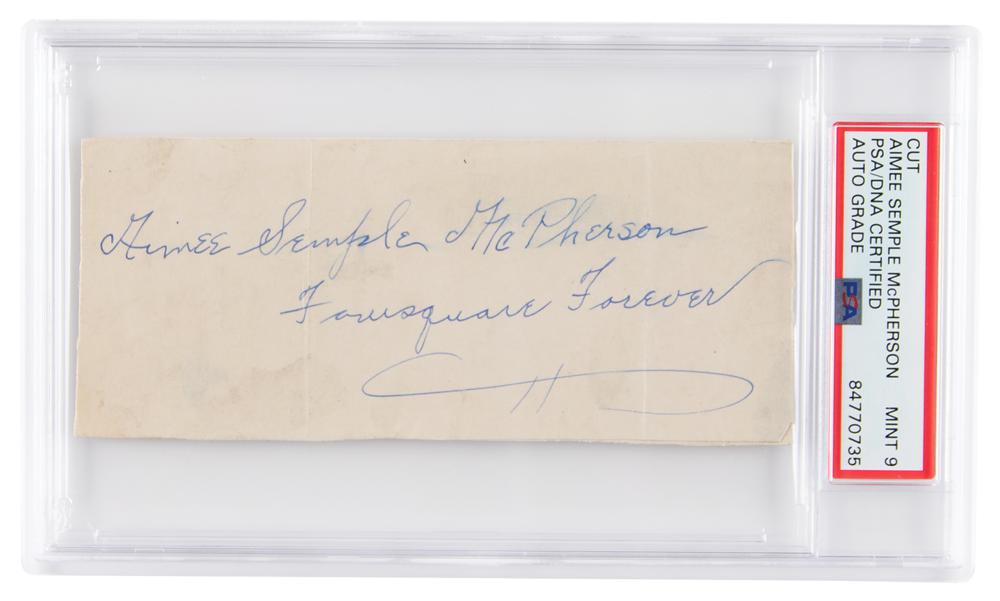 Aimee Semple McPherson
Foursquare Forever
CUT
AIMEE SEMPLE McPHERSON MINT 9
PSA/DNA CERTIFIED
AUTO GRADE 84770735
PSA